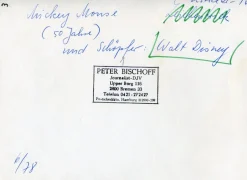 Mickey Mouse
(50 Jahre)
und Schöpfer: Walt Disney
PETER BISCHOFF
Journalist-DJV
Upper Borg 135
2800 Bremen 33
Telefon 0421-272427
/78